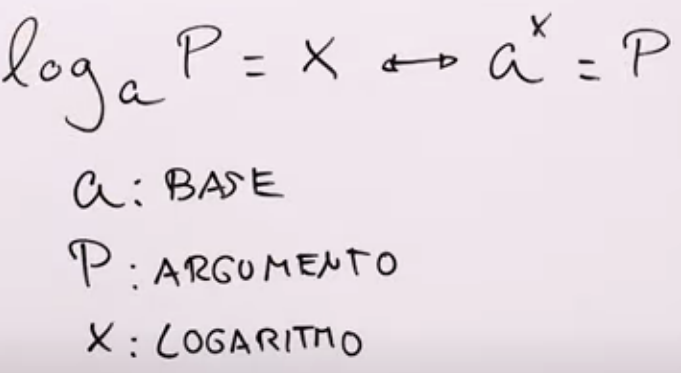 logₐ P = x ↔ aˣ = P
a: BASE
P: ARGUMENTO
x: LOGARITMO